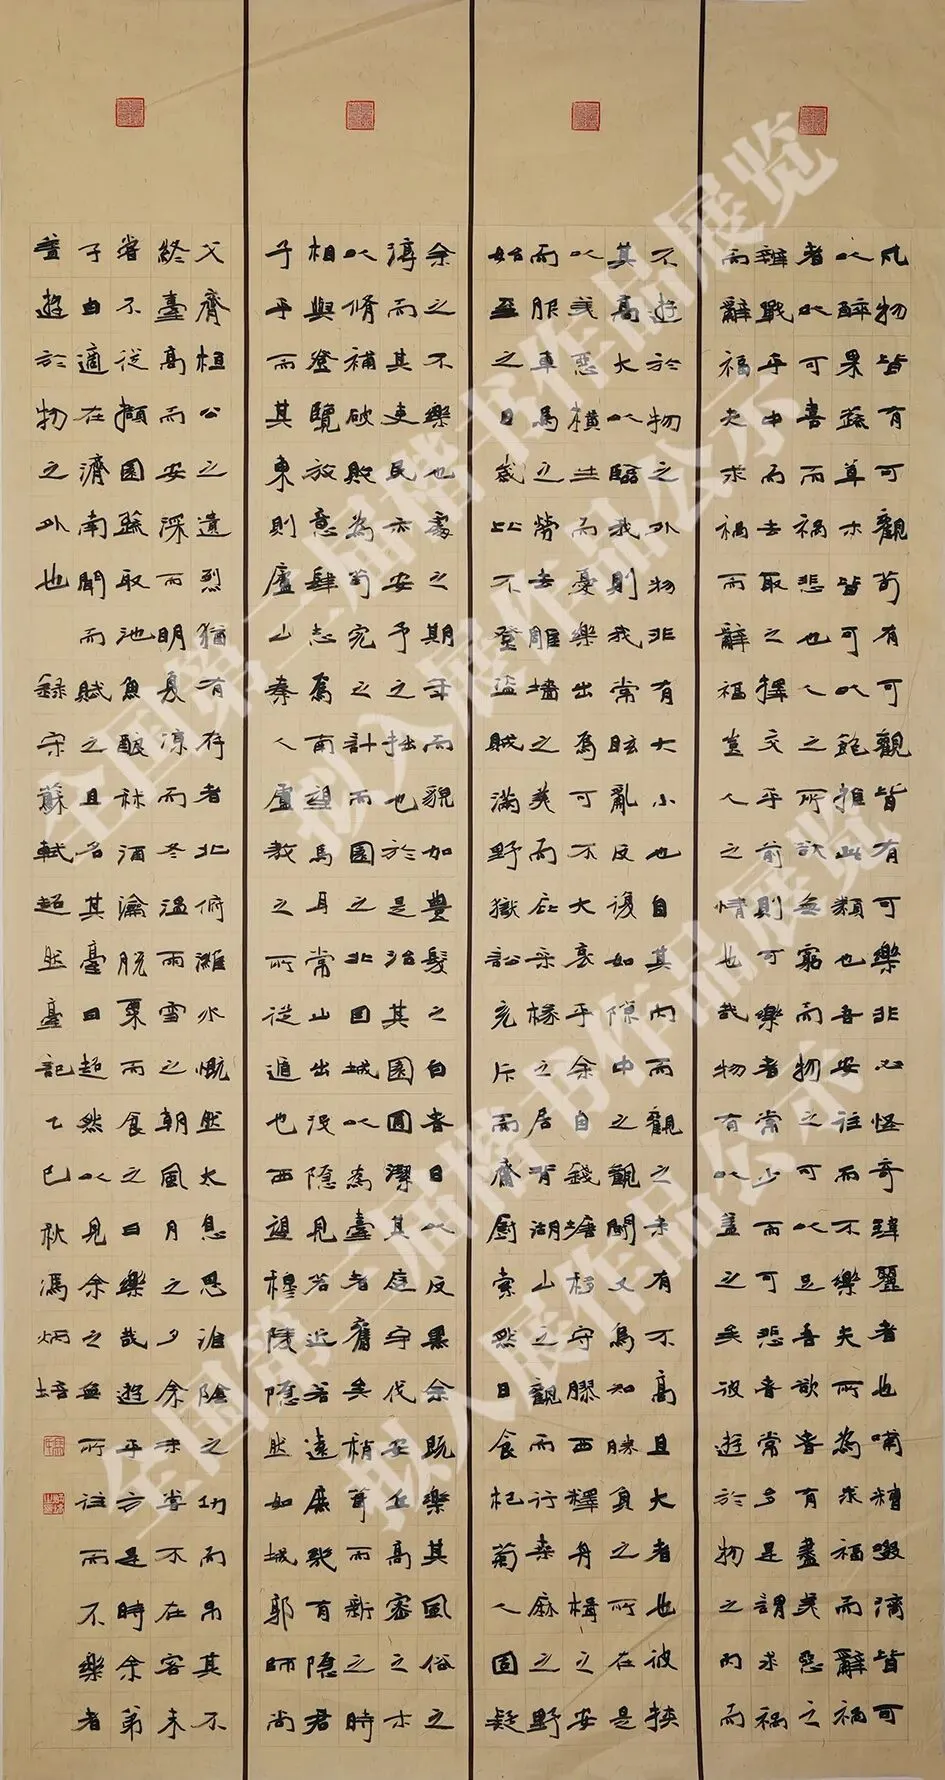 凡物皆有可觀苟有可觀皆有可樂非必怪奇瑋麗者也哺糟啜漓皆可
以醉果蔬草木皆可以飽推此類也吾安往而不樂夫所為求福而辭禍
者以可喜而禍悲也人之所欲無窮而物之可以足吾欲者有盡美惡之
辨戰乎中而去取之擇交乎前則可樂者常少而可悲者常多是謂求禍
而辭福夫求禍而辭福豈人之情也哉物有以蓋之矣彼遊於物之內而
不遊於物之外物非有大小也自其內而觀之未有不高且大者也彼挾
其高大以臨我則我常眩亂反復如隙中之觀鬭又烏知勝負之所在是
以美惡橫生而憂樂出焉可不大哀乎余自錢塘移守膠西釋舟楫之安
而服車馬之勞去雕墻之美而庇采椽之居背湖山之觀而行桑麻之野
始至之日歲比不登盜賊滿野獄訟充斥而齋廚索然日食杞菊人固疑
余之不樂也處之期年而貌加豐髮之白者日以反黑余既樂其風俗之
淳而其吏民亦安予之拙也於是治其園圃潔其庭宇伐安丘高密之木
以脩補破敗為苟完之計而園之北因城以為臺者舊矣稍葺而新之時
相與登覽放意肆志焉南望馬耳常山出沒隱見若近若遠庶幾有隱君
子乎而其東則廬山秦人盧敖之所從遁也西望穆陵隱然如城郭師尚
父齊桓公之遺烈猶有存者北俯濰水慨然太息思淮陰之功而弔其不
終臺高而安深而明夏涼而冬溫雨雪之朝風月之夕余未嘗不在客未
嘗不從擷園蔬取池魚釀秫酒瀹脫粟而食之曰樂哉遊乎方是時余弟
子由適在濟南聞而賦之且名其臺曰超然以見余之無所往而不樂者
蓋遊於物之外也 錄宋蘇軾超然臺記乙巳秋馮炳培
全国第三届楷书作品展览
拟入展作品公示
全国第三届楷书作品展览
拟入展作品公示